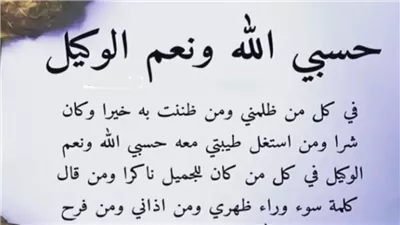 حسبي الله ونعم الوكيل
في كل من ظلمني ومن ظننت به خيرا وكان
شرا ومن استغل طيبتي معه حسبي الله ونعم
الوكيل في كل من كان للجميل ناكرا ومن قال
كلمة سوء وراء ظهري ومن اذاني ومن فرح